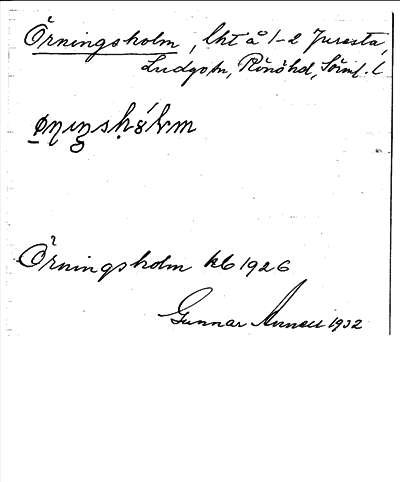 Örningsholm, lht å 1-2 Juresta,
Ludgo sn, Rönö hd, Söml. l
Örningsholm kb 1926
Gunnar Annell 1932